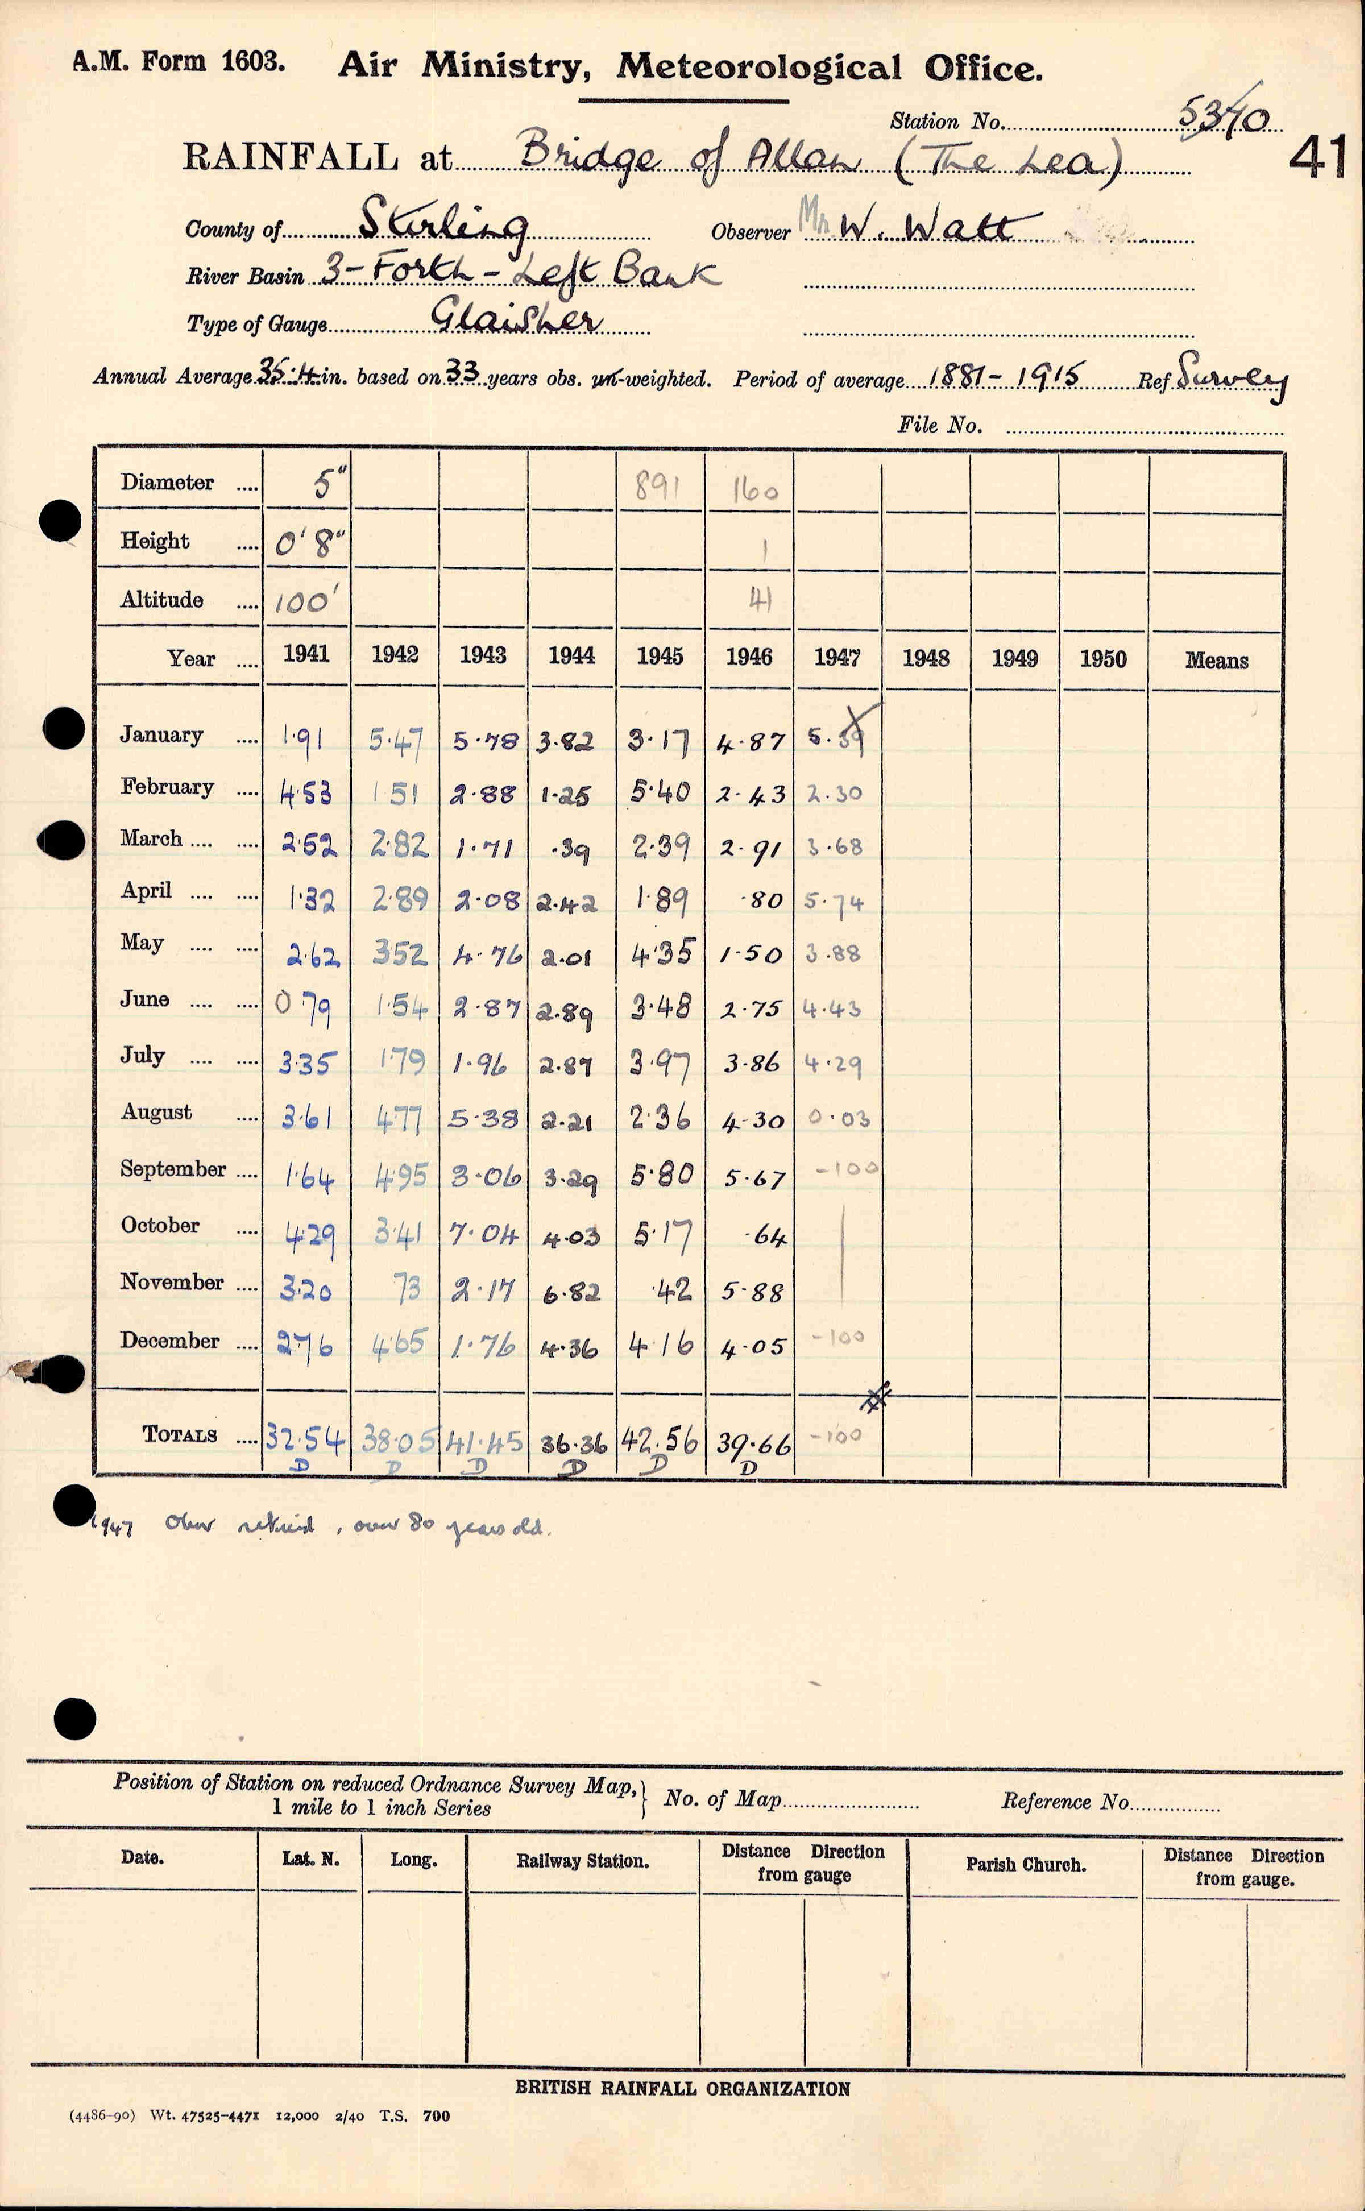 A.M. Form 1603. Air Ministry, Meteorological Office.
Station No. 5340
41
RAINFALL at Bridge of Allan (The Lea)
County of Stirling Observer Mr. W. Watt
River Basin 3-Forth-Left Bank
Type of Gauge Glaisher
Annual Average 35.4 in. based on 33 years obs. un-weighted. Period of average 1881-1915 Ref Survey
File No.
Diameter .... 5" 891 160
Height .... 0'8" 1
Altitude .... 100' 41
Year .... 1941 1942 1943 1944 1945 1946 1947 1948 1949 1950 Means
January .... 1.91 5.47 5.78 3.82 3.17 4.87 5.39
February .... 4.53 1 51 2.88 1.25 5.40 2.43 2.30
March .... .... 2.52 2.82 1.71 .39 2.39 2.91 3.68
April .... .... 1.32 2.89 2.08 2.42 1.89 .80 5.74
May .... .... 2.62 352 4.76 2.01 4.35 1.50 3.88
June .... .... 0 79 1.54 2.87 2.89 3.48 2.75 4.43
July .... .... 3.35 1.79 1.96 2.87 3.97 3.86 4.29
August .... 3.61 4.77 5.38 2.21 2.36 4.30 0.03
September .... 1.64 4.95 3.06 3.29 5.80 5.67 -100
October .... 4.29 3.41 7.04 4.03 5.17 .64
November .... 3.20 73 2.17 6.82 .42 5.88
December .... 2.76 4.65 1.76 4.36 4 16 4.05 -100
TOTALS .... 32.54 38.05 41.45 36.36 42.56 39.66 -100
D D D D D D
1947 Obsr retired, over 80 years old.
Position of Station on reduced Ordnance Survey Map, 1 mile to 1 inch Series } No. of Map Reference No.
Date. Lat. N. Long. Railway Station. Distance Direction from gauge Parish Church. Distance Direction from gauge.
BRITISH RAINFALL ORGANIZATION
(4486-90) Wt. 47525-4471 12,000 2/40 T.S. 700